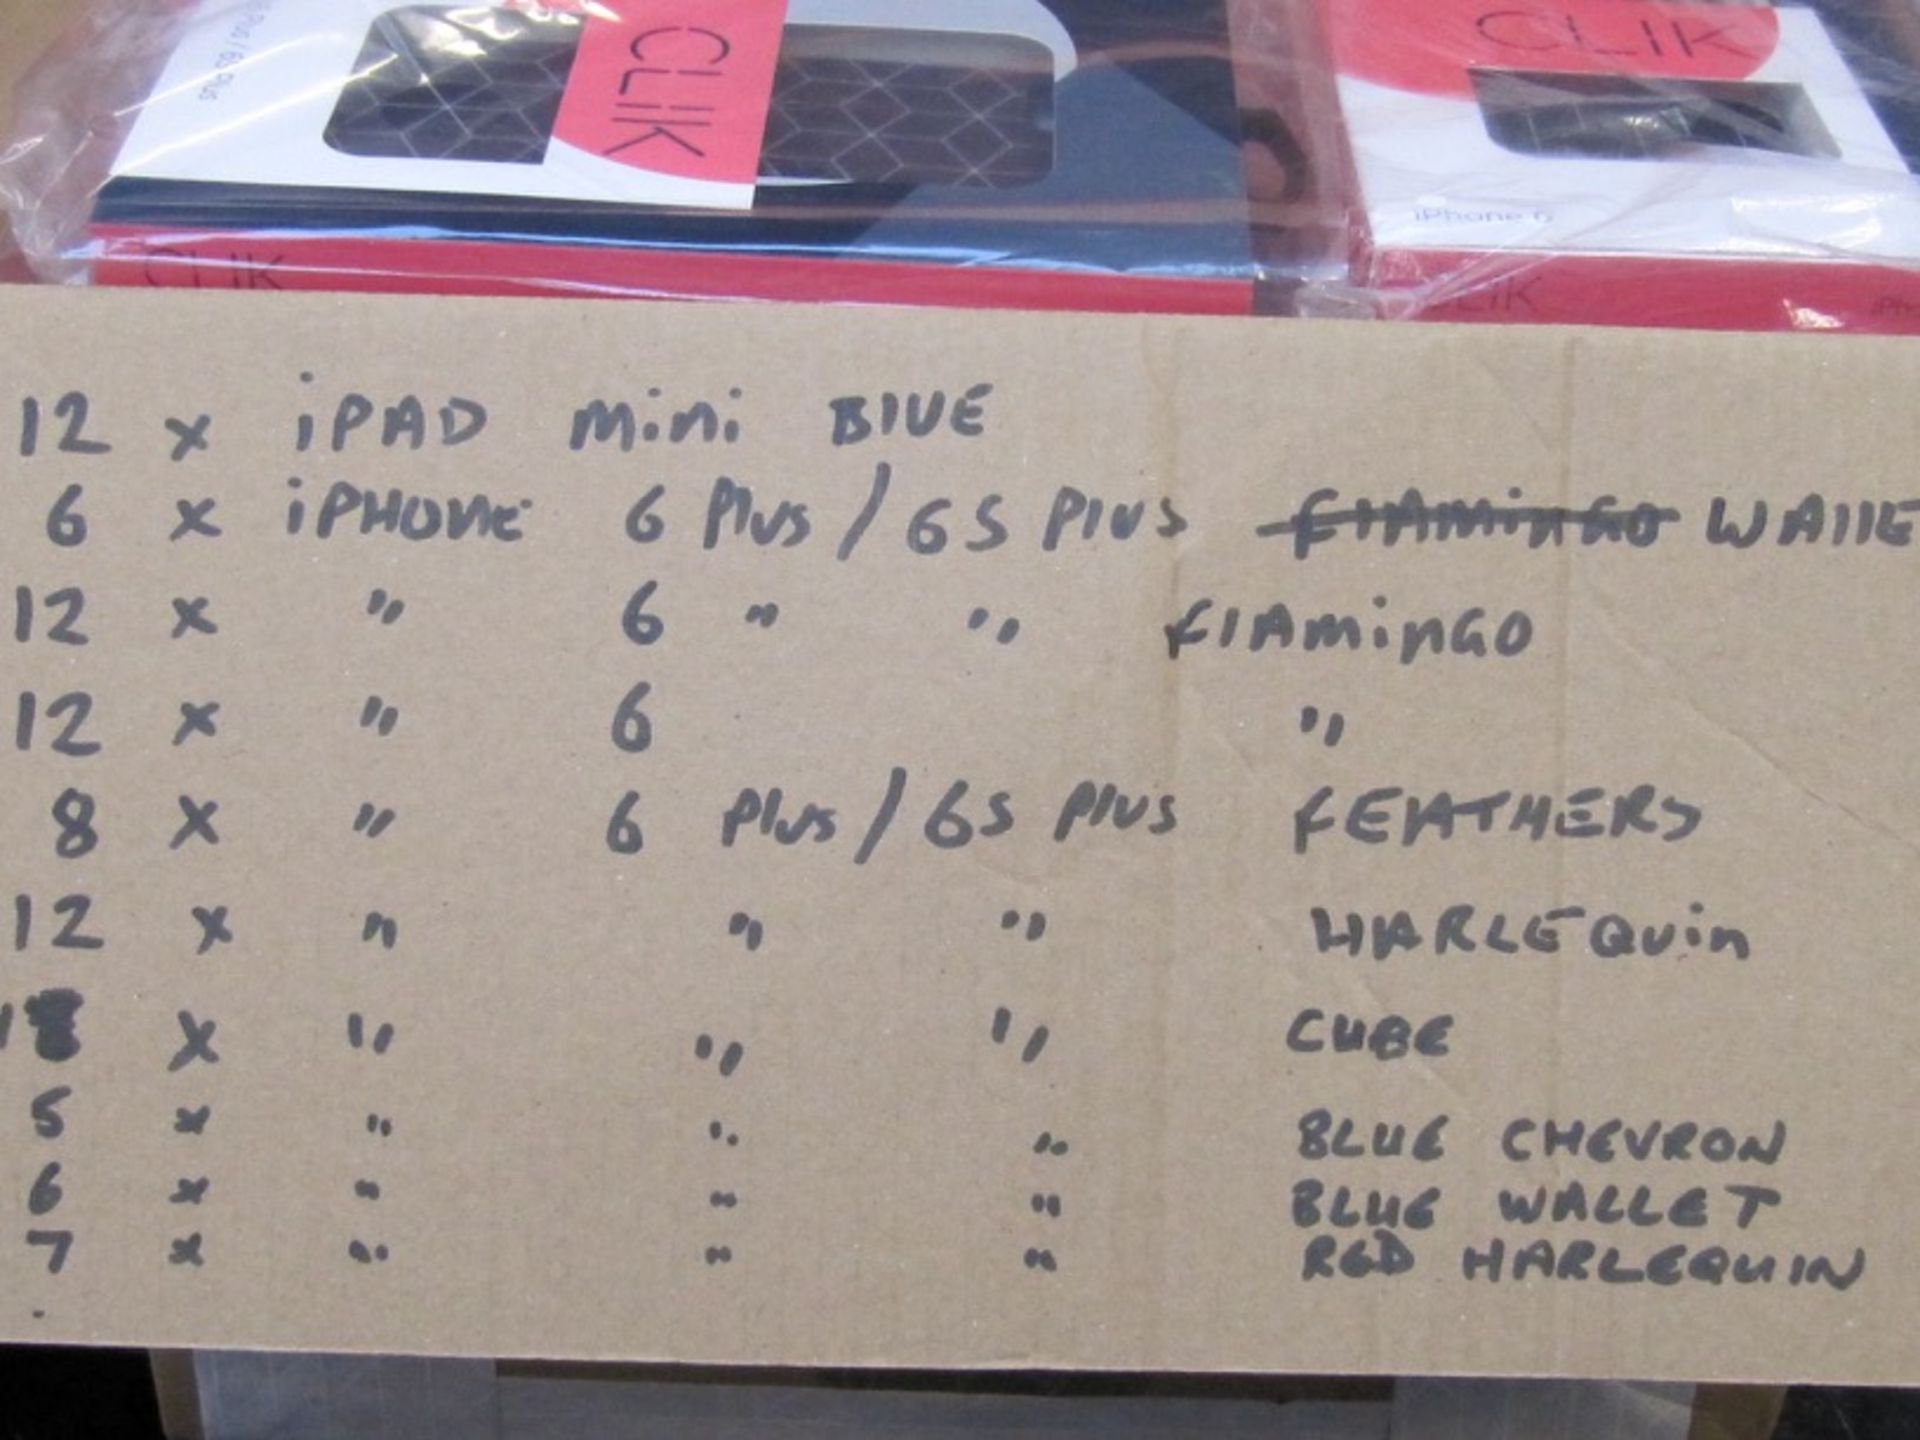 6s Plus
CLIK
CLIK
iPhone 6
CLIK
CLIK
12 x iPAD mini BlUE
6 x iPHONE 6 Plus / 6S Plus FlAMinGO WAllE
12 x " 6 " " FlAminGO
12 x " 6 "
8 x " 6 Plus / 6S Plus FEATHERS
12 x " " " HARLEQuin
x " " " CUBE
5 x " " " BLUE CHEVRON
6 x " " " BLUE WALLET
7 x " " " RED HARLEQUIN